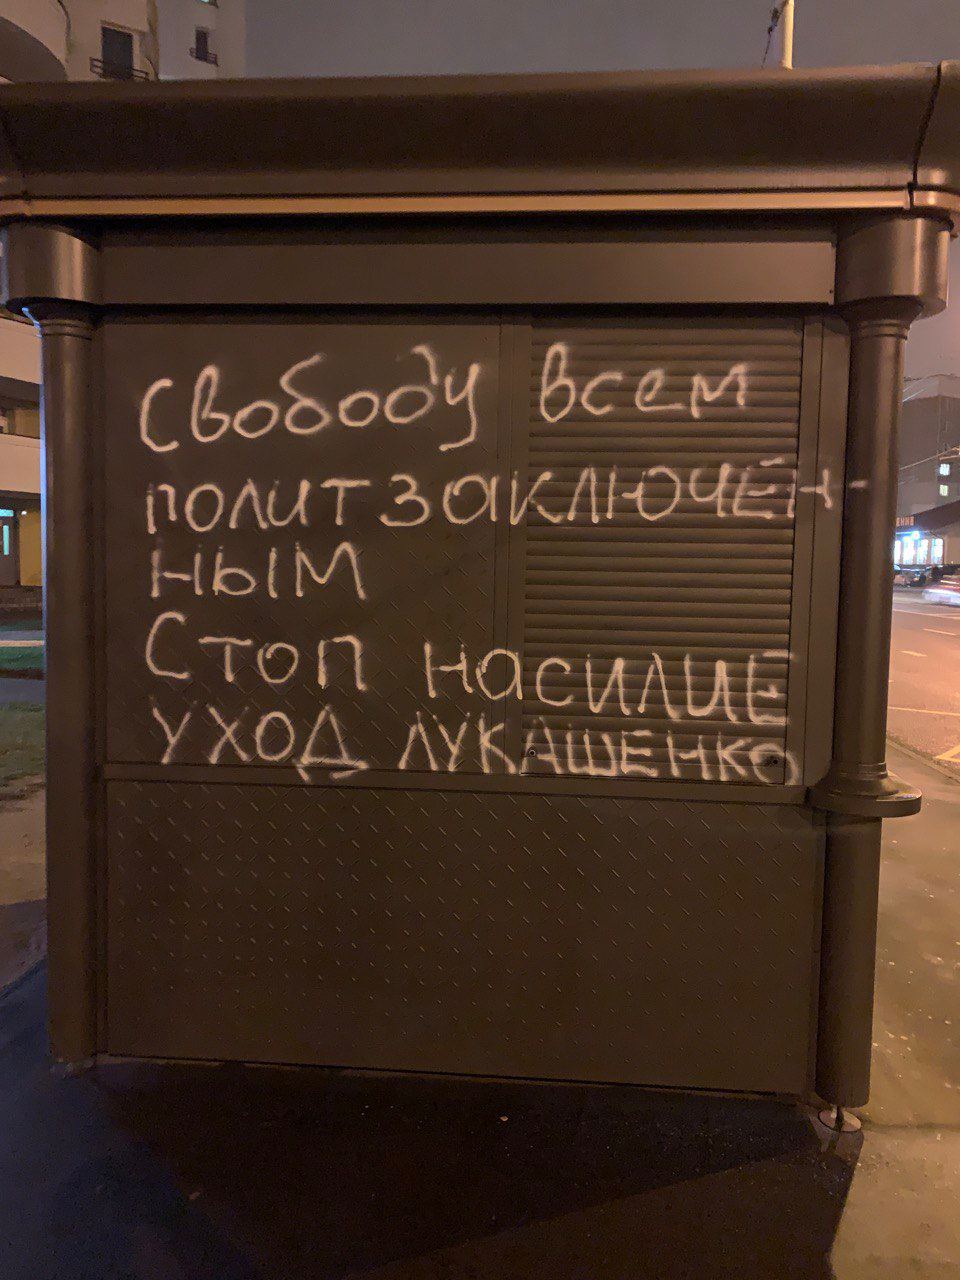 Свободу всем
политзаключен-
ным
Стоп насилие
уход Лукашенко